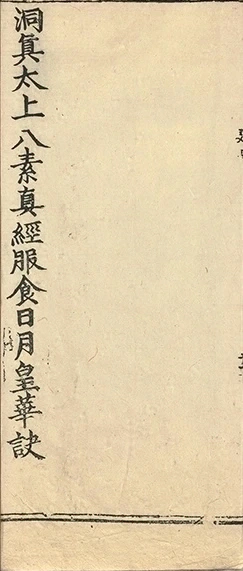 洞真太上八素真經服食日月皇華訣